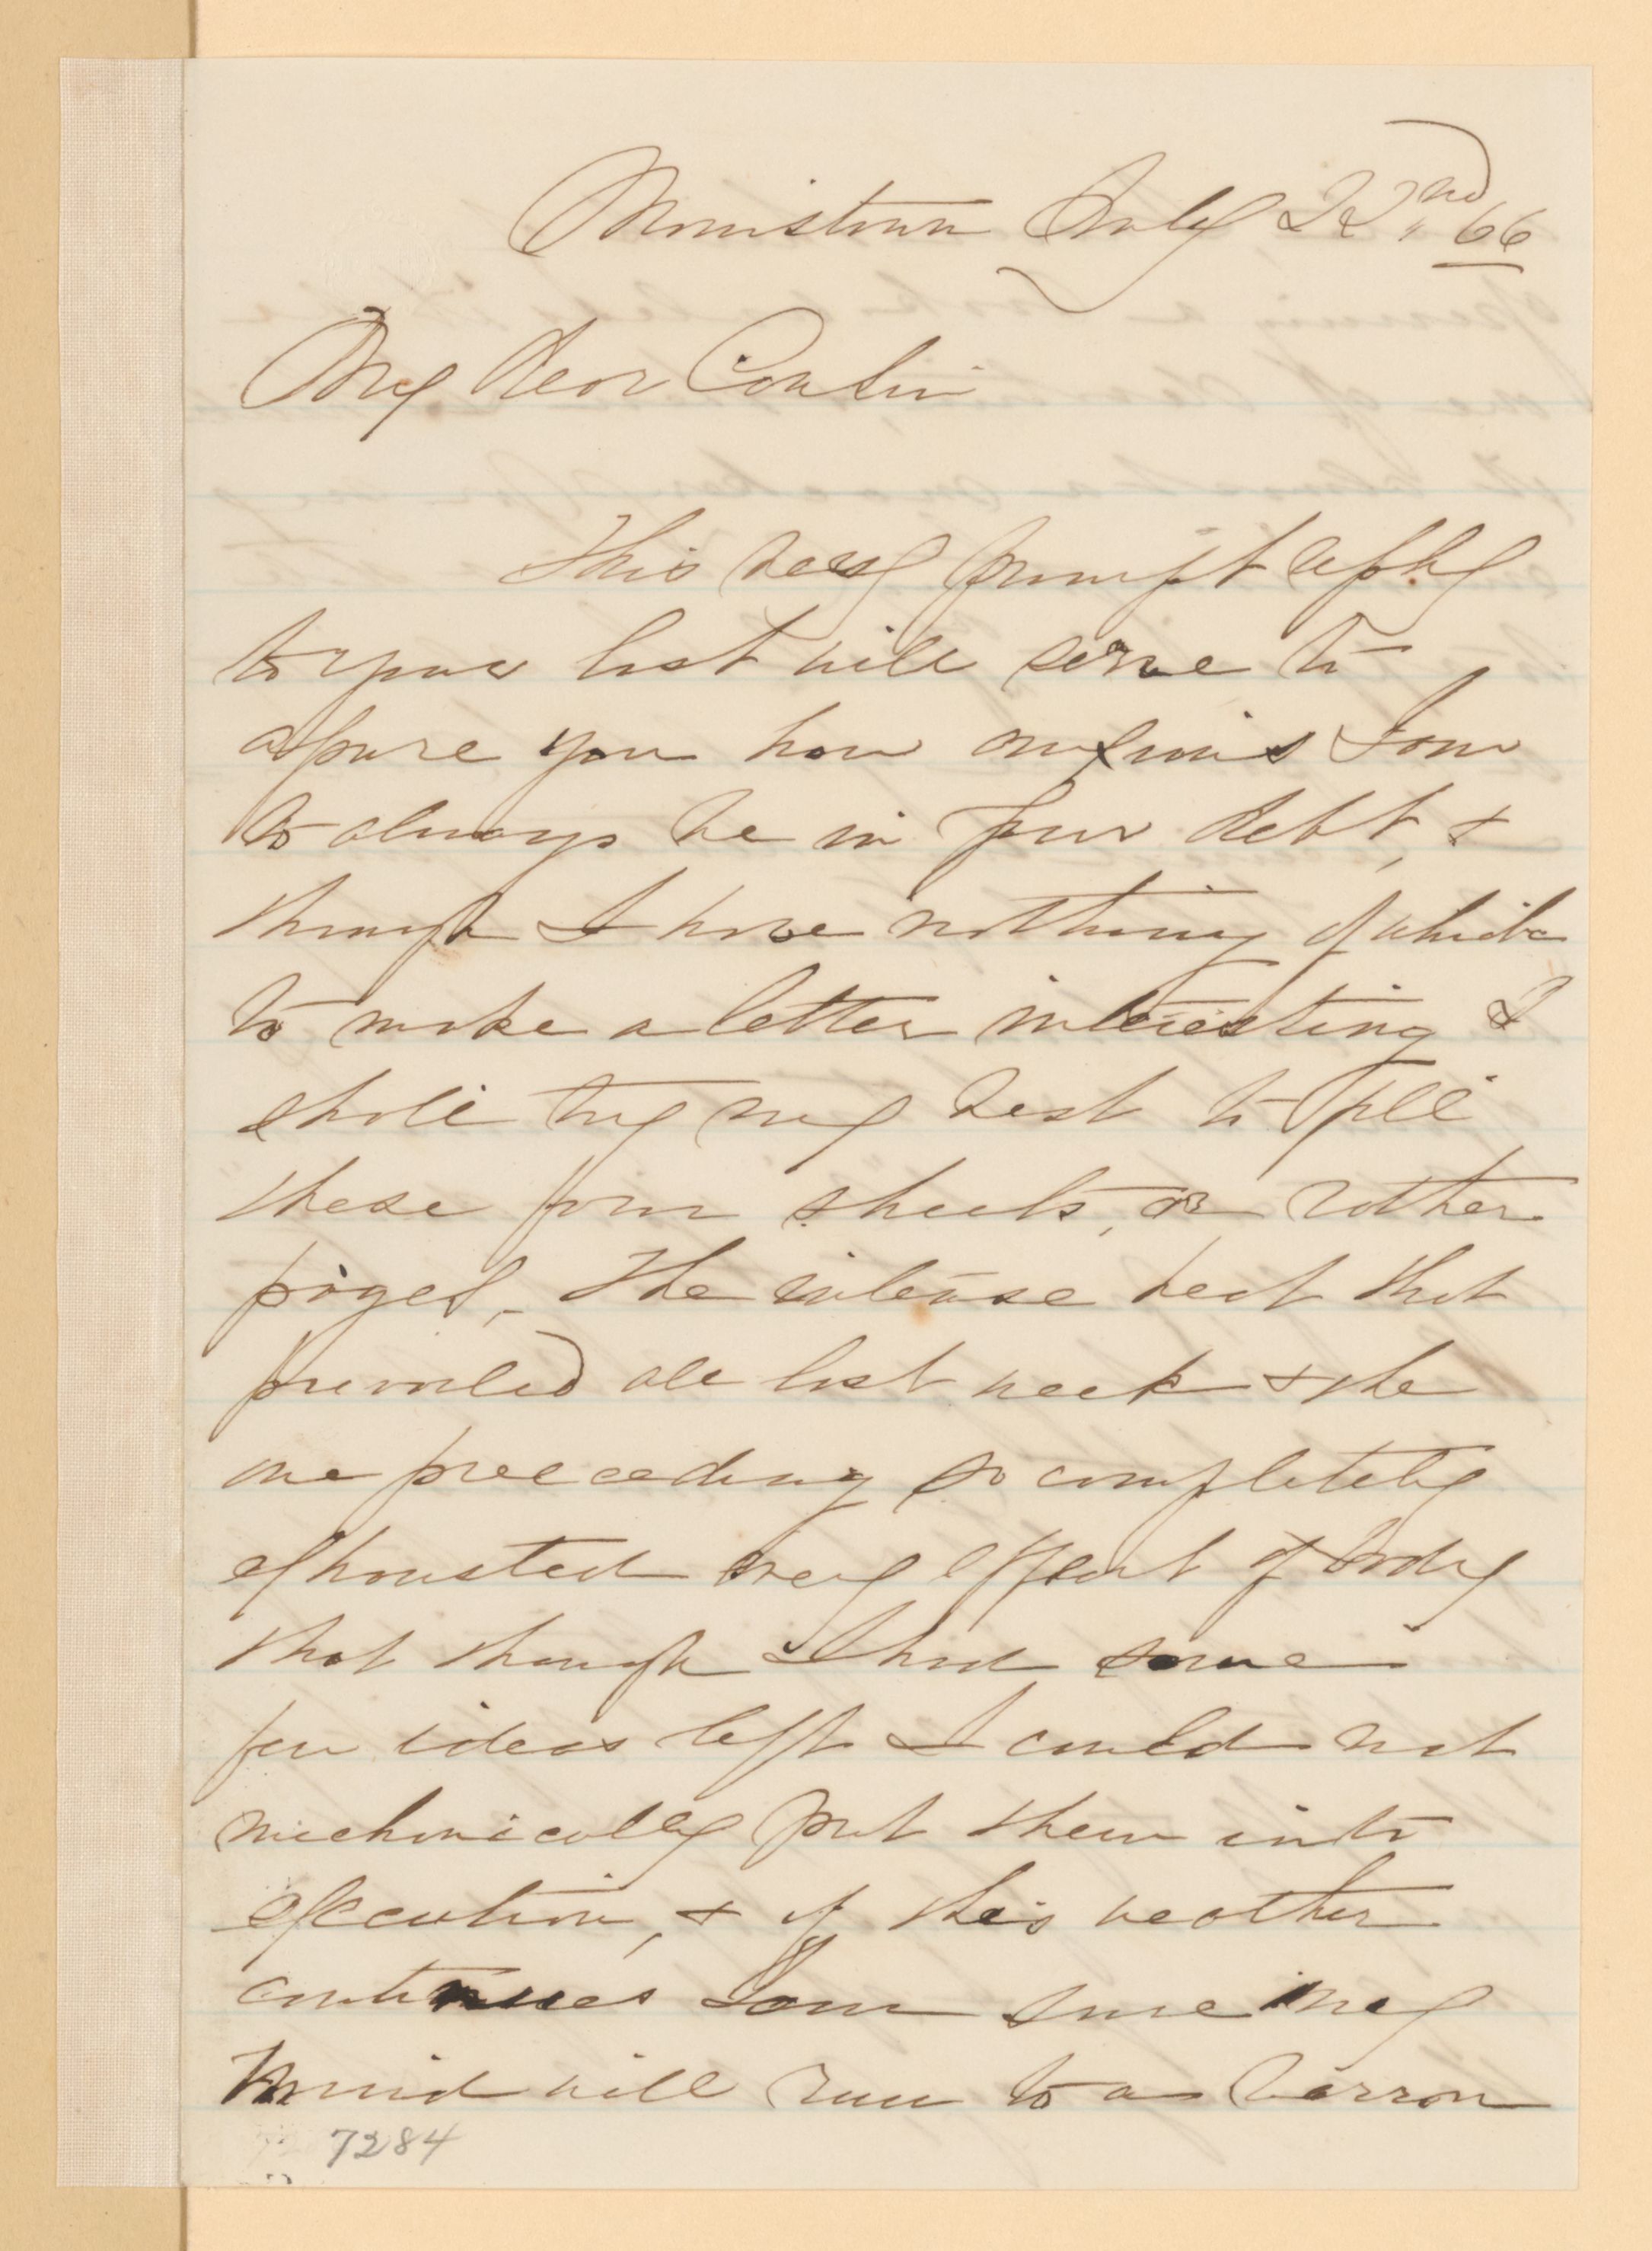 Morristown July 22nd, 66
My Dear Cousin
This very prompt reply
to your last will serve to
assure you how anxious I am
to always be in your debt, &
though I have nothing of which
to make a letter interesting I
shall try my best to fill
these four sheets, or rather
pages,- The intense heat that
prevailed all last week & the
one preeceding so completely
exhausted every effort of body
that though I had some
few ideas left I could not
mechanically put them into
execution, & if this weather
continues I am sure my
mind will run to a barron
7284